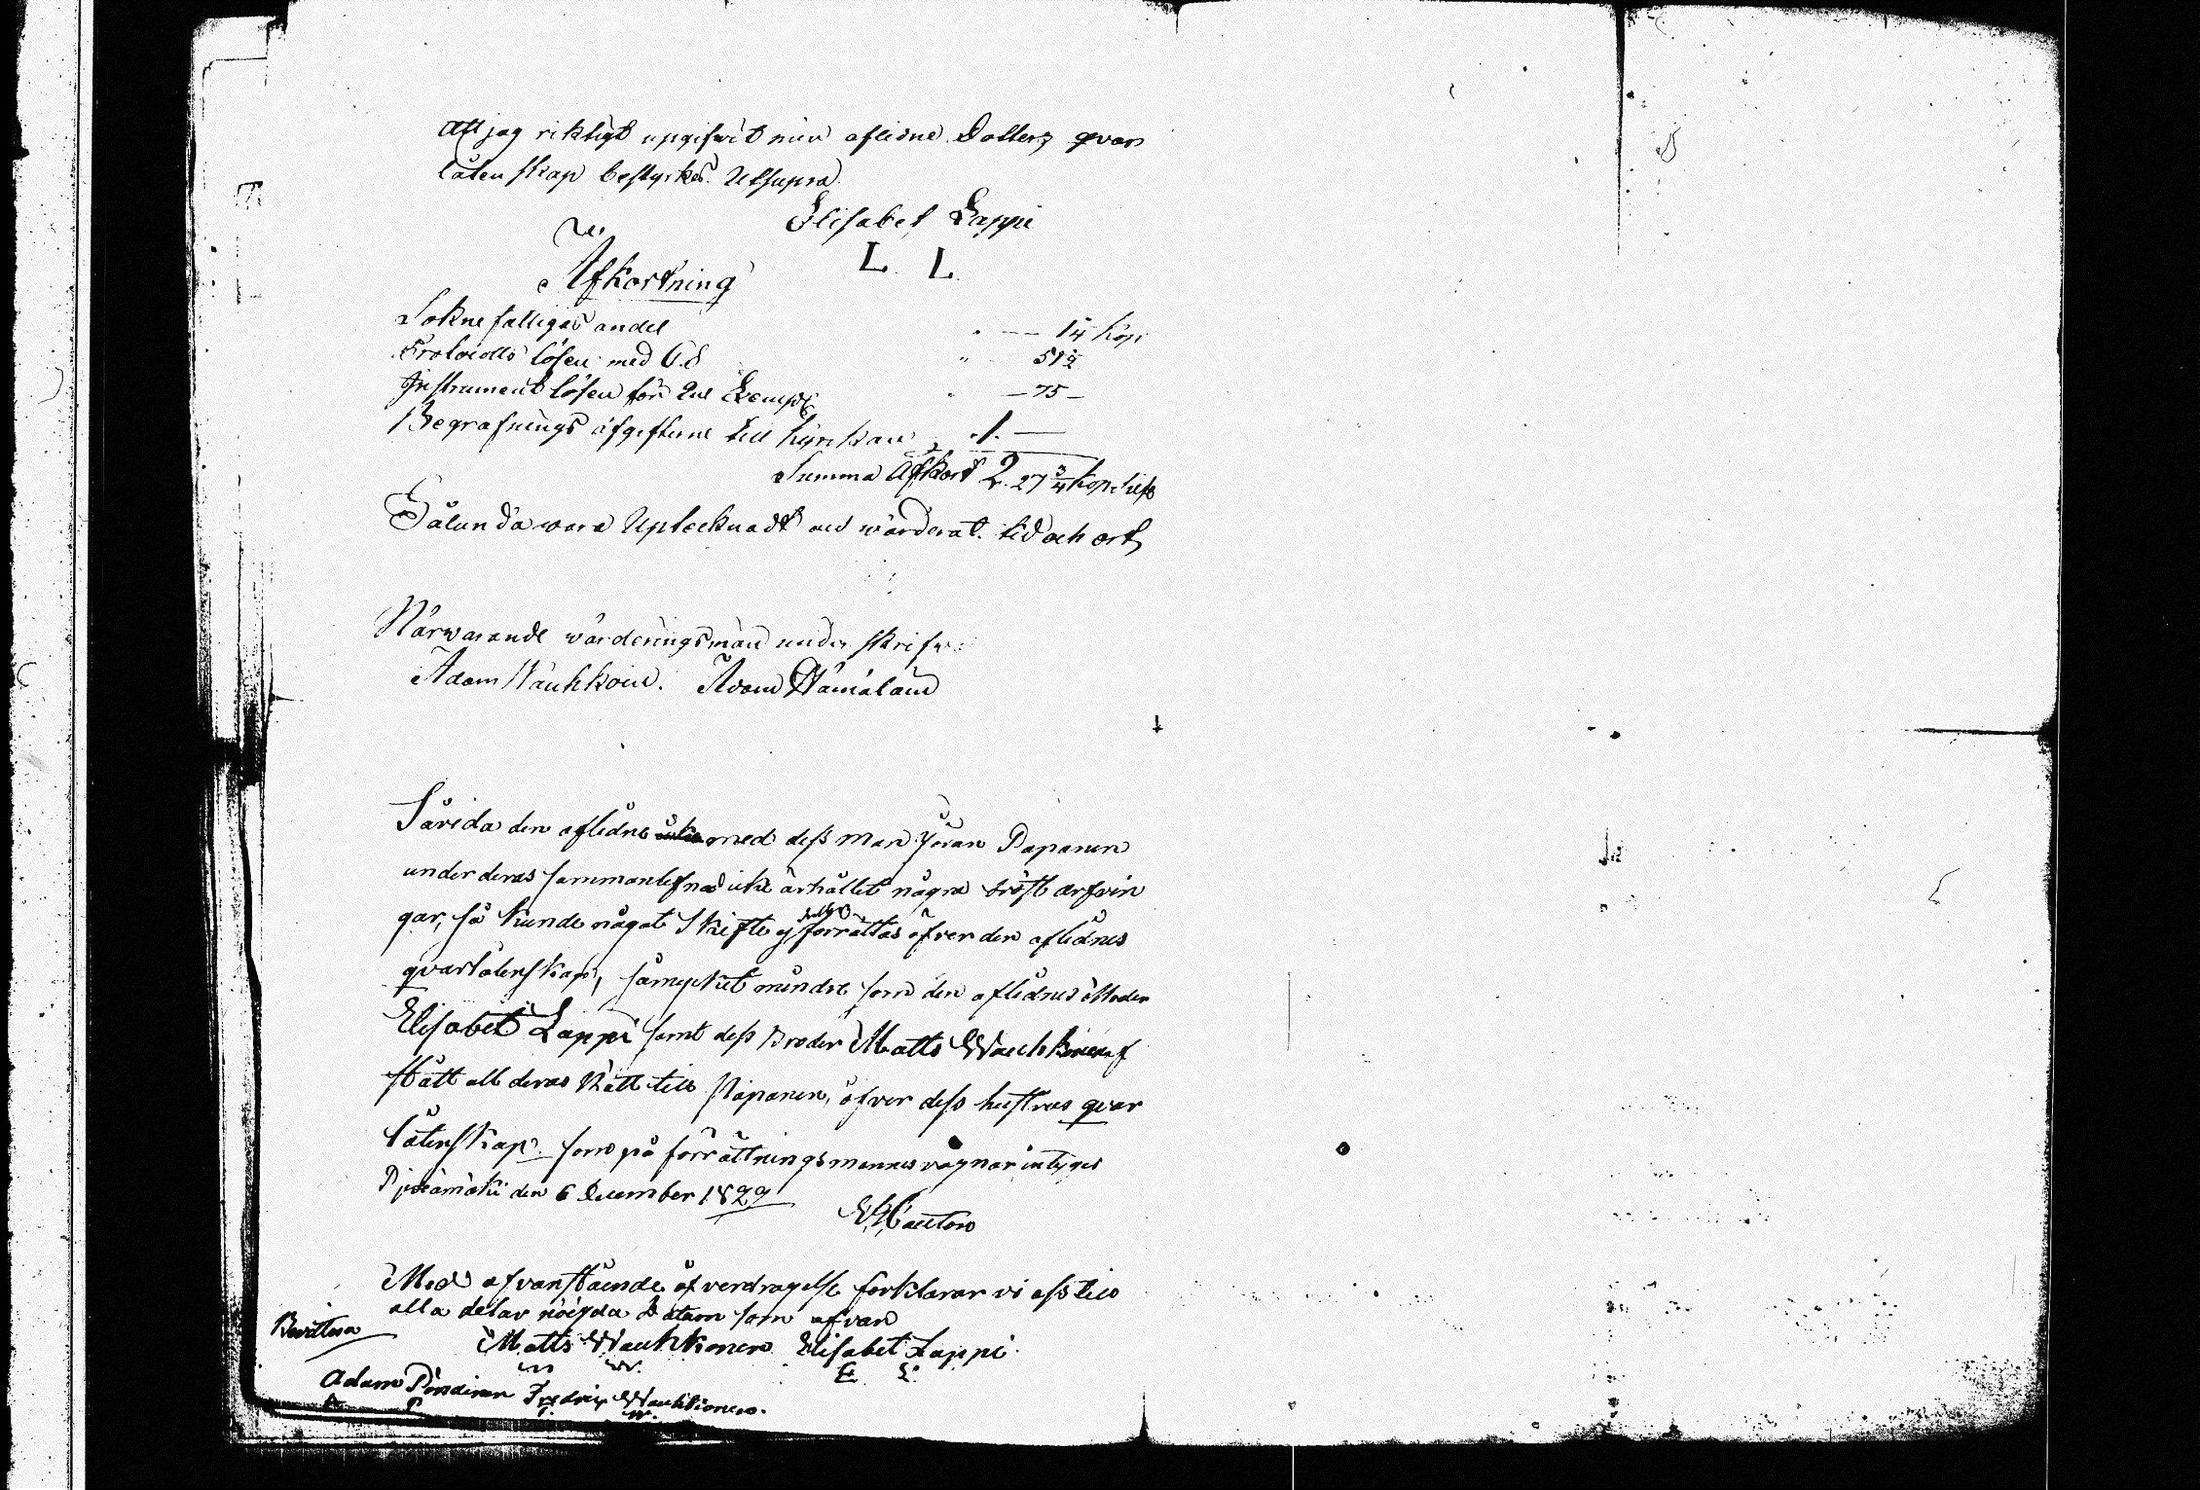 Att jag riktigt upgifwit min aflidne Dotters qvar
låtenskap bestyrkes. Utsupra.
Elisabet Lappi
L. L.
Afkortning
Soknefattigas andel 1¼ kop.
Protocolls lösen med C.S 51½
Instrument lösen för 2ne Exempl. 75
Begrafnings afgifterne till kyrkan 1.
Summa Afkort 2. 27¾ kop. Silf.
Sålunda wara Uptecknadt och wärderat. tid och ort
Närwarande wärderingsmän under skrifw
Adam Wauhkoin. Adam Hämäläin
Såvida den aflidne med dess man Jöran Paparen
under deras sammanlefnad icke ärhållet några bröst arfvin
gar, så kunde något Skifte ej förrättas öfver den aflidnes
qvarlåtenskap, såmycket mindre som den aflidnes Moder
Elisabet Lappi samt dess Broder Matts Wauhkonen af
stått all deras Rätt till Paparen, öfver dess hustrus qvar
låtenskap. som på förrättningsmannes vägnar intyges
den 6 December 1829
Med ofvanstående öfverdragelse förklarar vi oss till
alla delar nöigda Datum som ofvan
Bevittna
Matts Wauhkonen Elisabet Lappi
M W. E L.
Adam Pöndinen Fredrix Wauhkonen.
A P F. W.